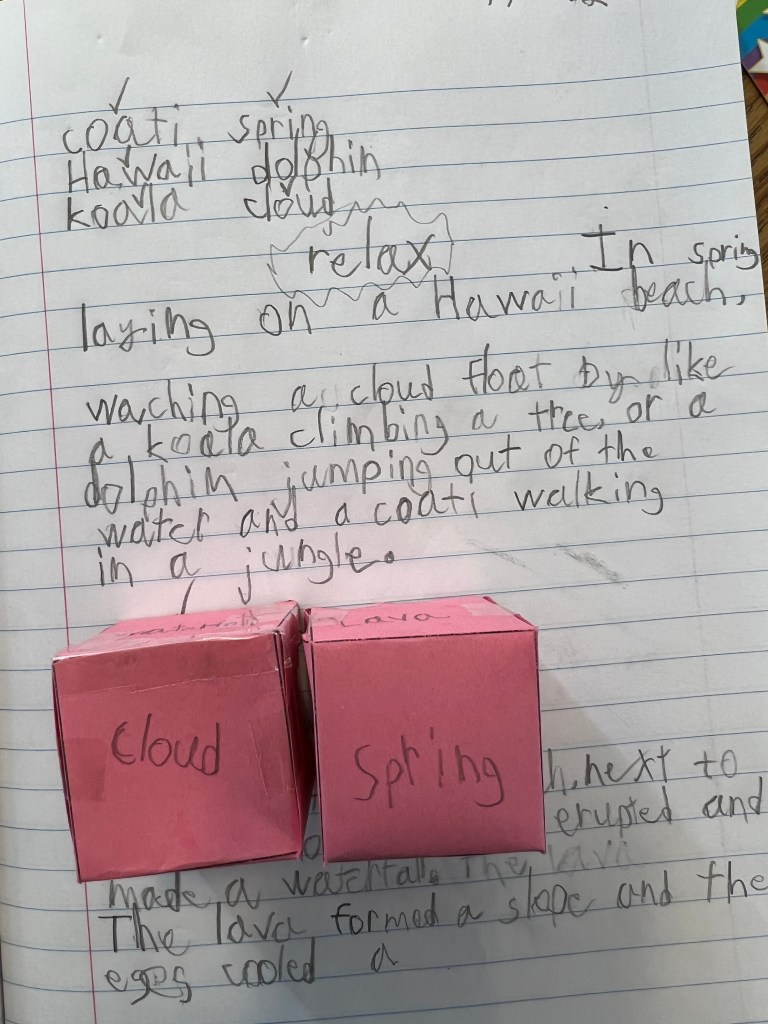 coati spring
Hawaii dolphin
koala cloud
relax
In spring
laying on a Hawaii beach,
waching a cloud float by like
a koala climbing a tree, or a
dolphin jumping out of the
water and a coati walking
in a jungle.
Lava
cloud
Spring
next to
erupted and
made a waterfall. The lava
The lava formed a slope and the
eges cooled a